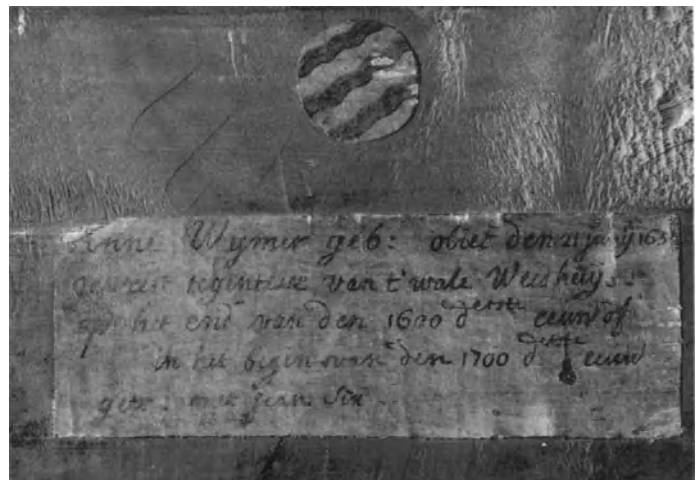 Anne Wymer geb: obiet den 21 junij 163
geweest regentisse van t'wale Weeshuys
op het end van den 1600 d eerste eeuw of
in het begin van den 1700 d eerste eeuw
getr: met jean